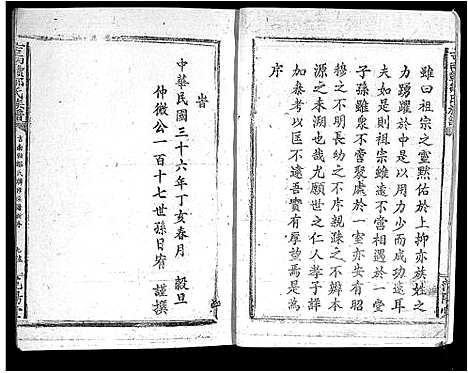 雖曰祖宗之靈默佑於上抑亦族姓之
力踴躍於中是以用力少而成功速耳
夫如是則祖宗雖遠不啻聚於一堂
子孫雖衆不啻聚處於一室亦安有昭
穆之不明長幼之不序親疎之不辨本
源之未溯也哉尤願世之仁人孝子詳
加叅考以匡不逮吾實有厚望焉是為
序
峕
中華民國三十六年丁亥春月 穀旦
仲微公一百十七世孫日睿 謹撰